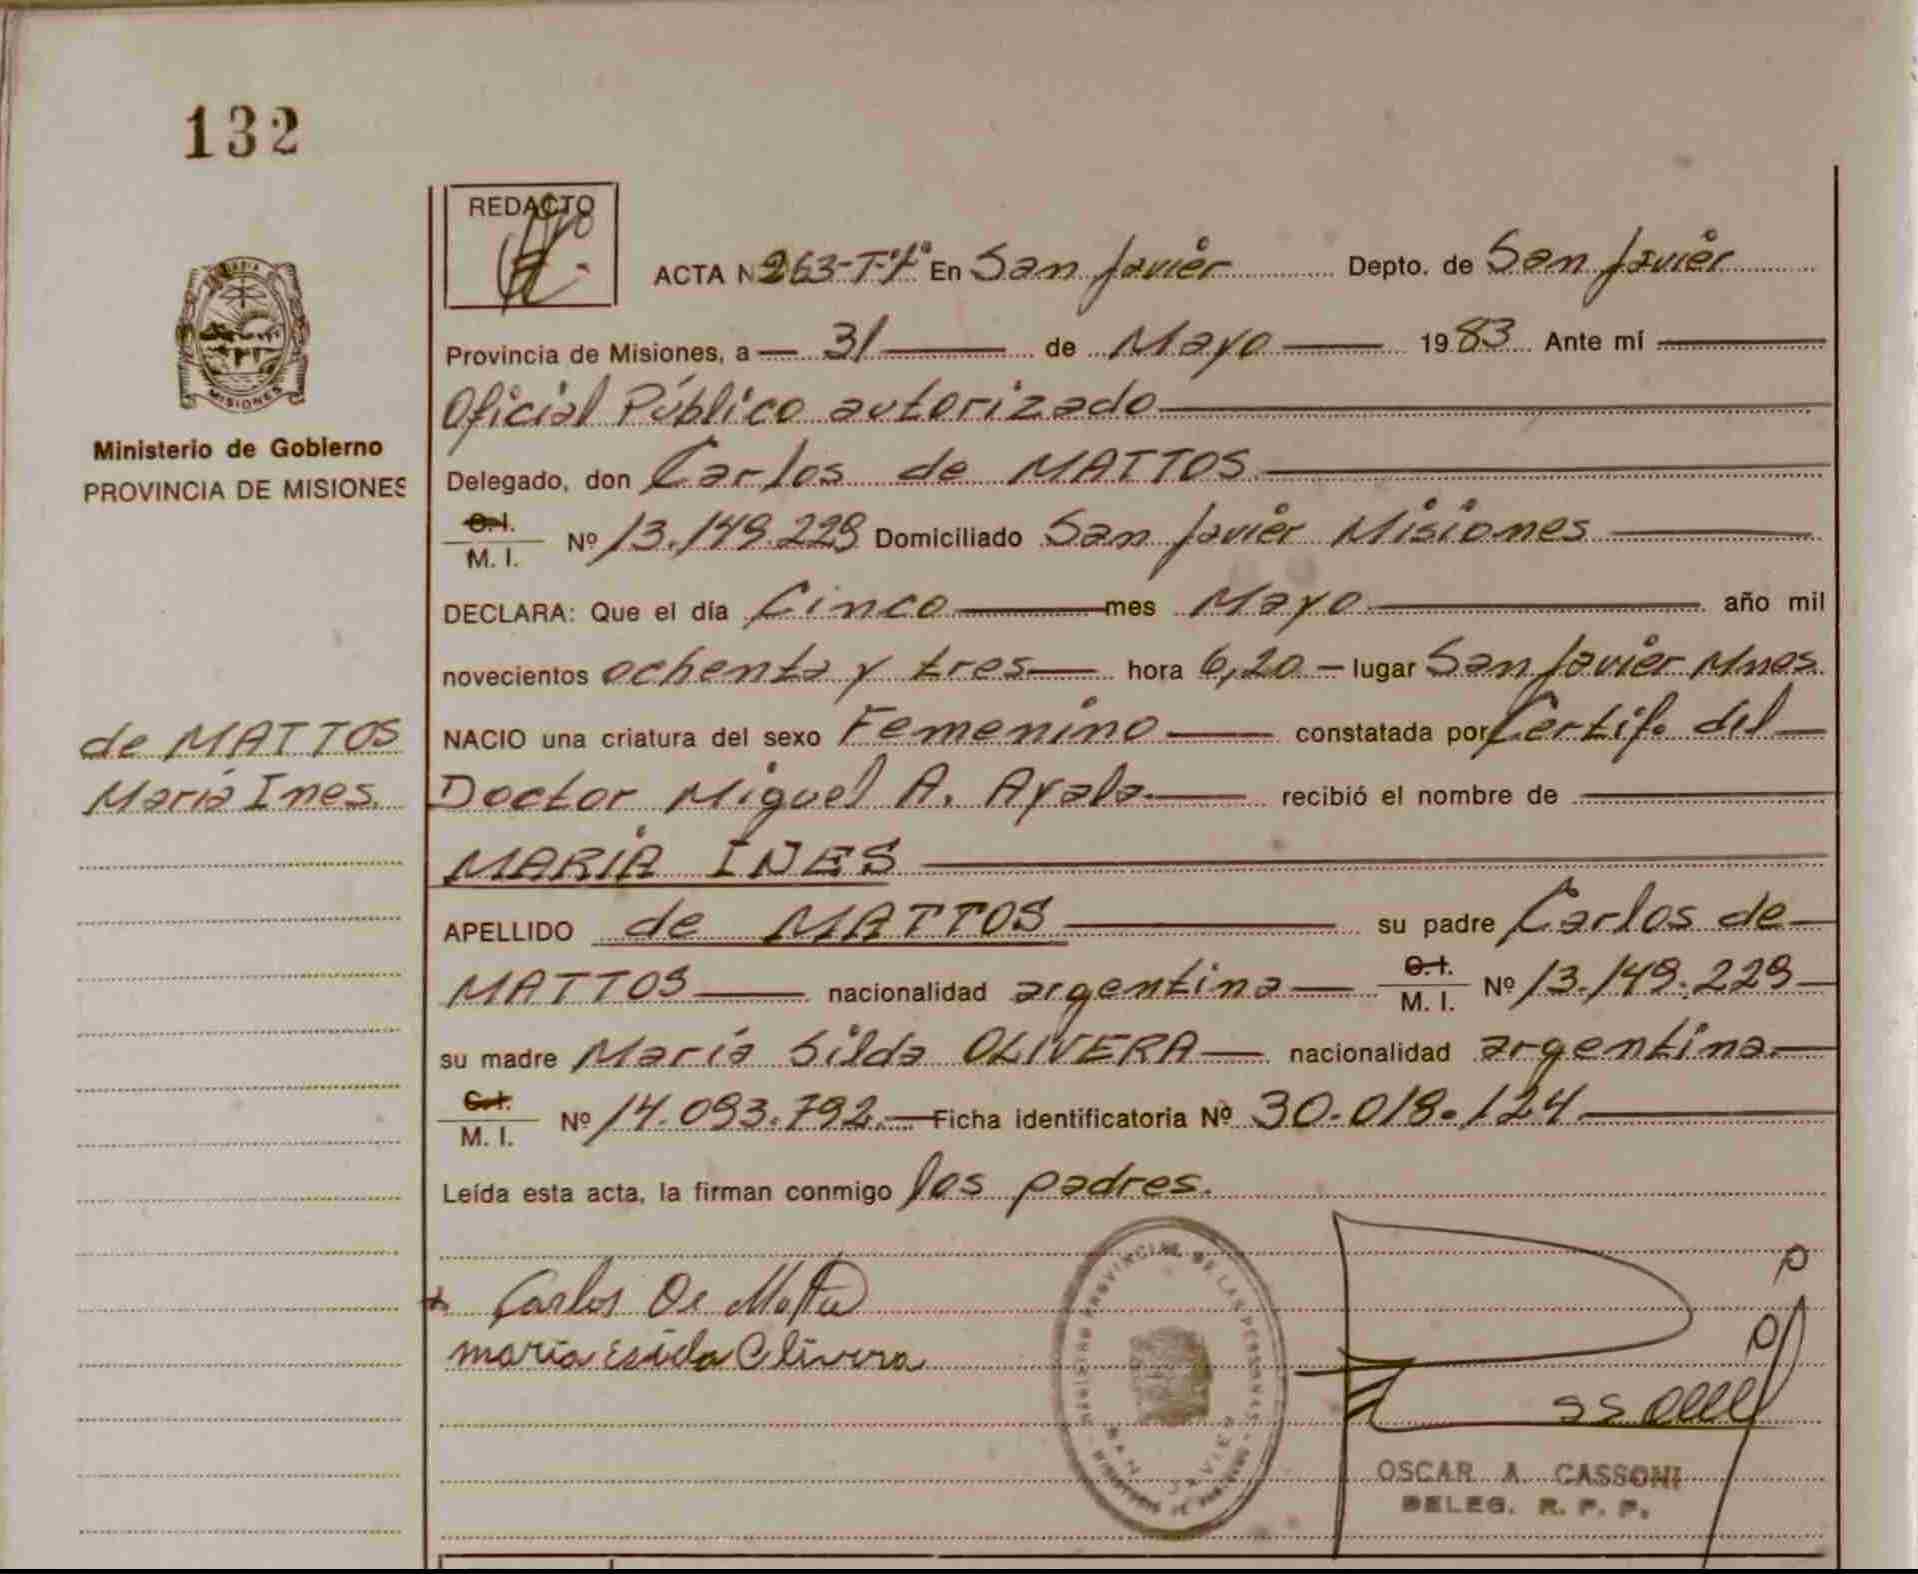 132
REDACTO
ACTA N 263-Tº1º En San Javier Depto. de San Javier
Provincia de Misiones, a 31 de Mayo 1983 Ante mí
Oficial Público autorizado
Ministerio de Gobierno
PROVINCIA DE MISIONES
Delegado, don Carlos de MATTOS
C.I.
M. I. Nº 13.149.229 Domiciliado San Javier Misiones
DECLARA: Que el día Cinco mes Mayo año mil
novecientos ochenta y tres hora 6,20 lugar San Javier Mnes.
de MATTOS
María Ines.
NACIO una criatura del sexo Femenino constatada por Certif. del
Doctor Miguel A. Ayala recibió el nombre de
MARIA INES
APELLIDO de MATTOS su padre Carlos de
MATTOS nacionalidad argentina C.I. M. I. Nº 13.149.229
su madre María Silda OLIVERA nacionalidad argentina
C.I.
M. I. Nº 14.093.792. Ficha identificatoria Nº 30.019.124
Leída esta acta, la firman conmigo los padres.
Carlos De
maria Olivera
SAN JAVIER
OSCAR A. CASSONI
DELEG. R. P. P.